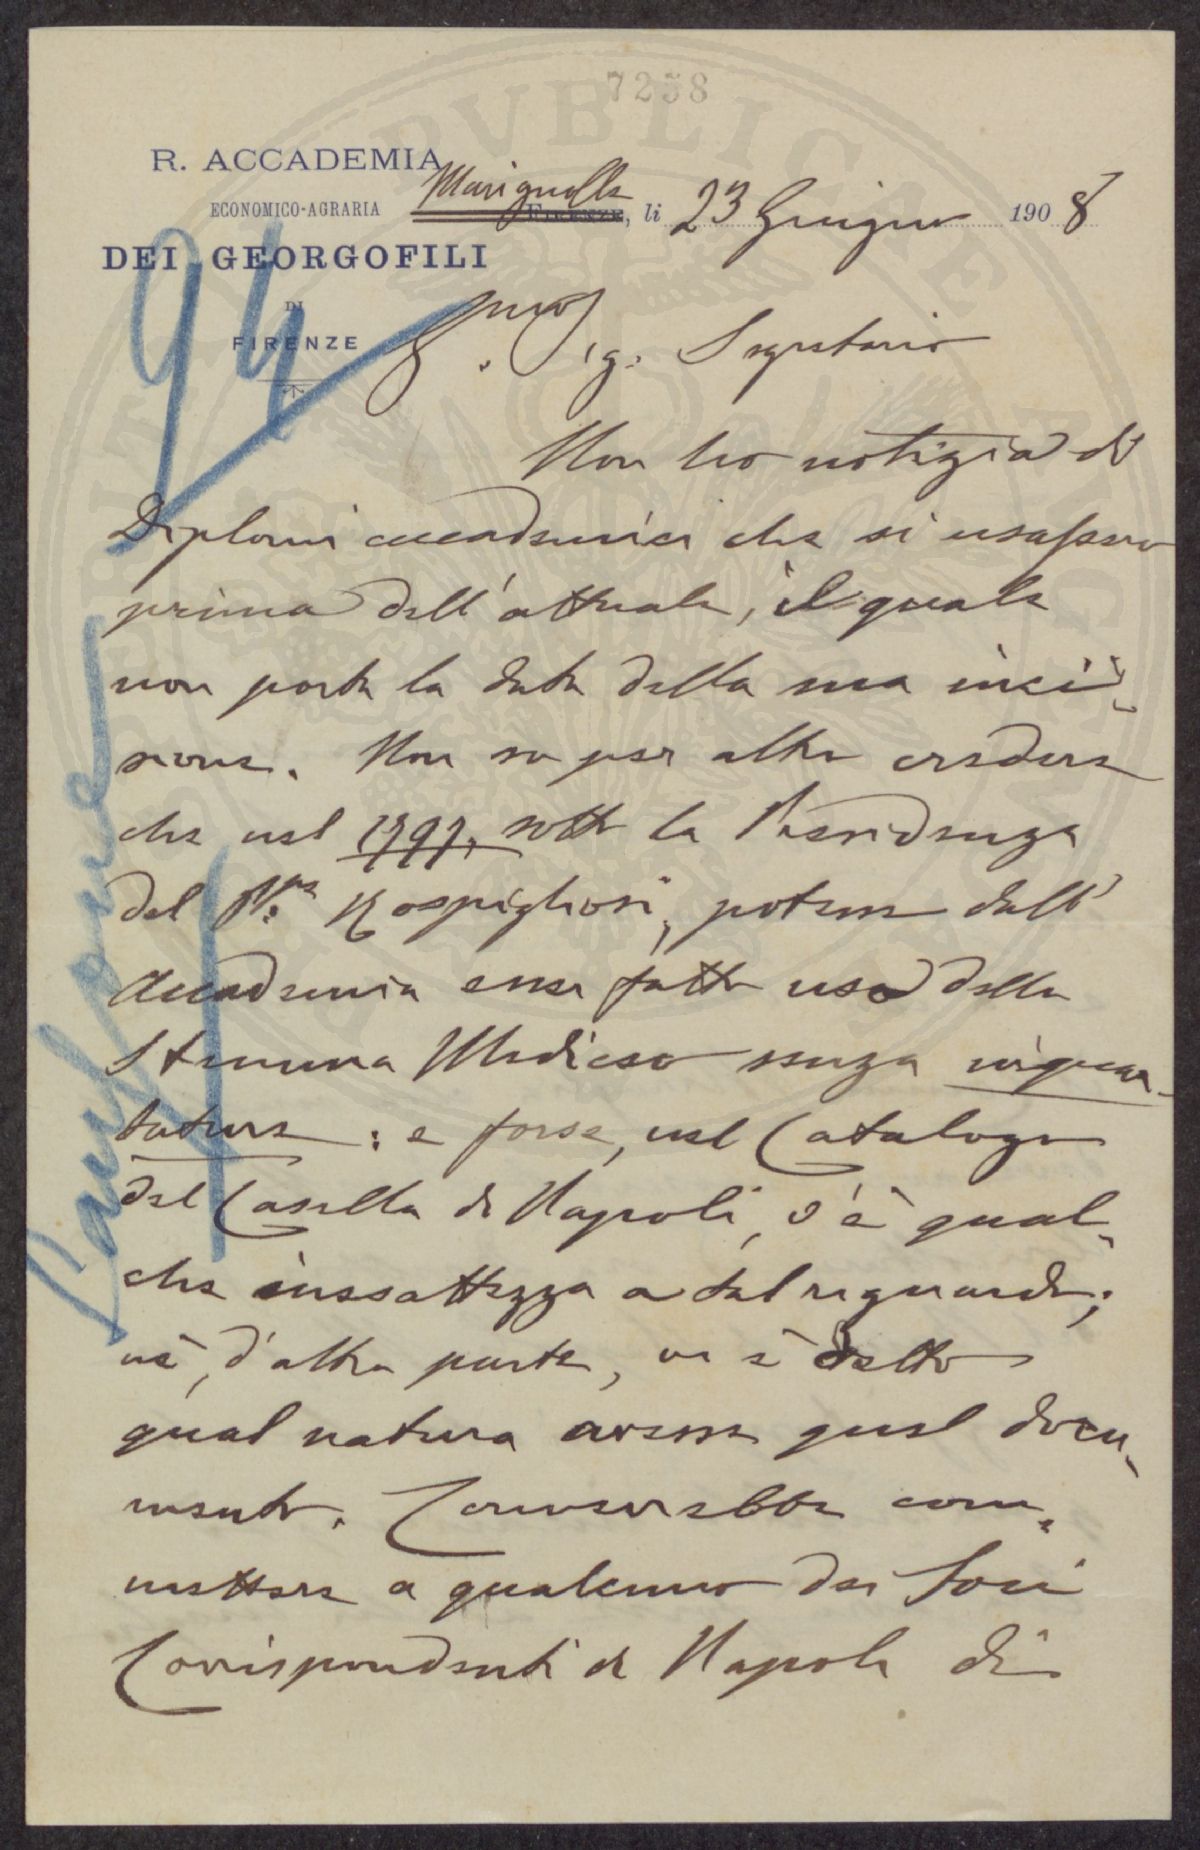 7258
R. ACCADEMIA
ECONOMICO-AGRARIA
DEI GEORGOFILI
DI
FIRENZE
Marignolle
FIRENZE, li 23 Giugno 1908
94
Sig. Segretario
Non ho notizia di
Diplomi accademici che si usassero
prima dell'attuale, il quale
non porta la data della sua inci-
sione. Non so per altro credere
che nel 1797, sotto la Presidenza
del Pr.pe Rospigliosi, potesse dall'
Accademia esser fatto uso dello
Stemma Mediceo senza inquar-
tature: e forse, nel Catalogo
del Casella di Napoli, v'è qual-
che inesattezza a tal riguardo;
nè, d'altra parte, vi è detto
qual natura avesse quel docu-
mento. Converrebbe com-
mettere a qualcuno dei Soci
Corrispondenti di Napoli di